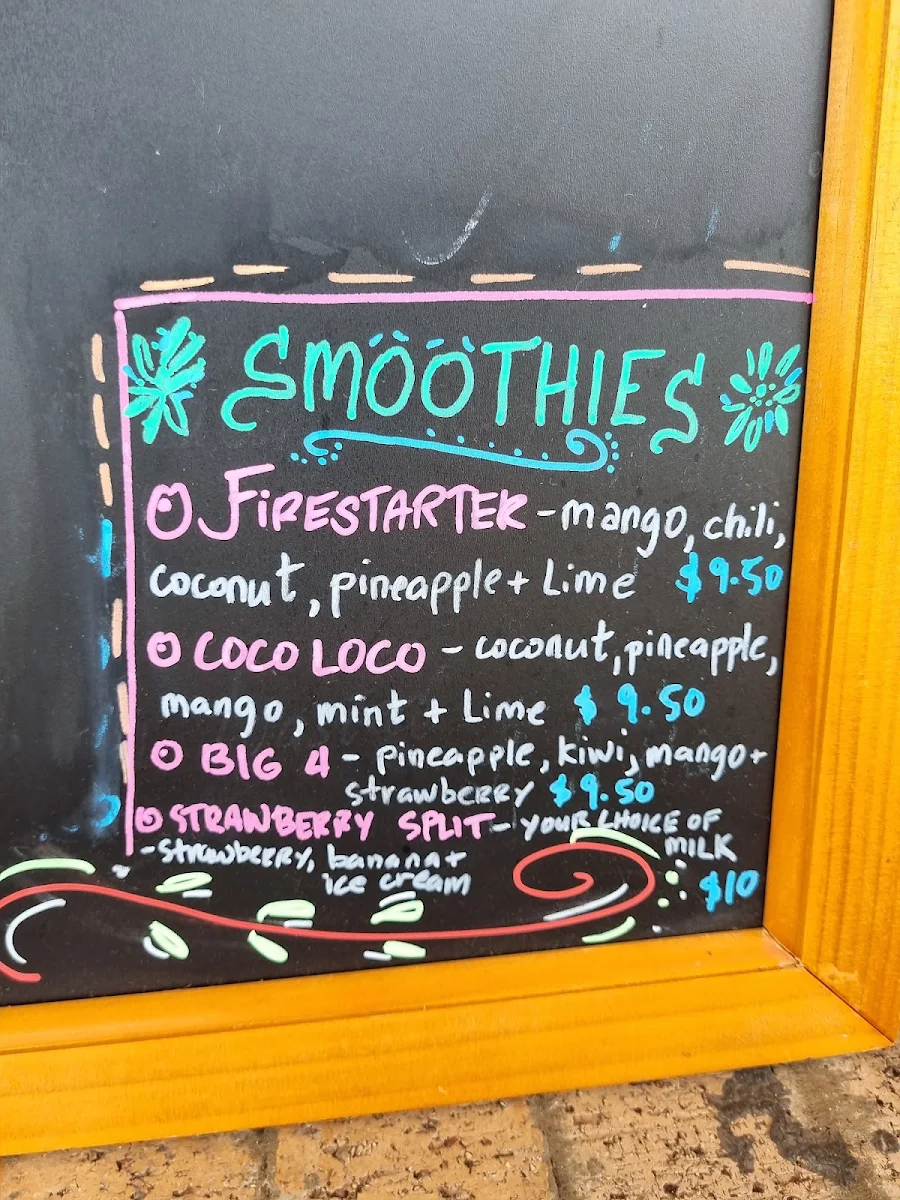 SMOOTHIES
FIRESTARTER - mango, chili,
coconut, pineapple + Lime $9.50
COCO LOCO - coconut, pineapple,
mango, mint + Lime $9.50
BIG 4 - pineapple, kiwi, mango +
strawberry $9.50
STRAWBERRY SPLIT - YOUR CHOICE OF
MILK
- strawberry, banana +
ice cream
$10